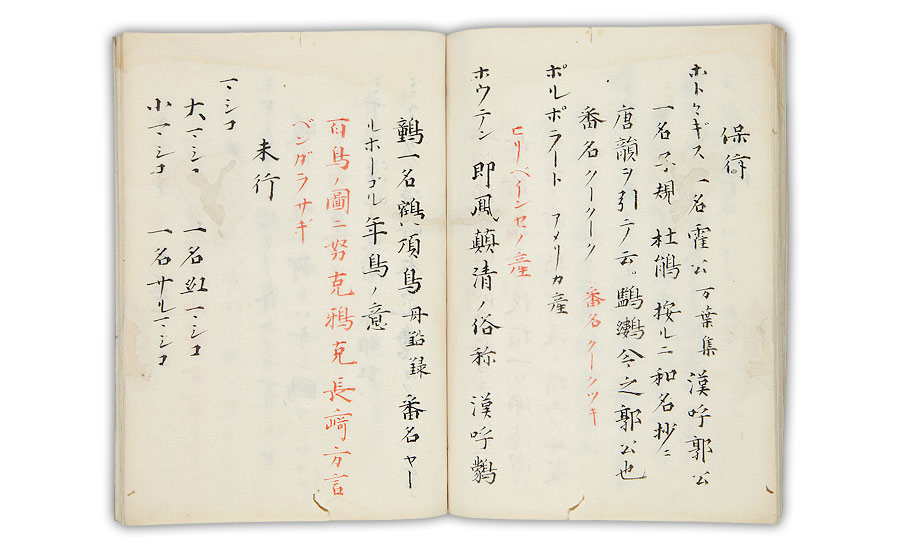 保符
ホトヽギス 一名霍公 万葉集 漢呼郭公
一名子規 杜鵑 按ルニ和名抄ニ
唐韻ヲ引テ云 鷜 今之郭公也
番名クークーク 番名クークツキ
ポルポラート アメリカ産
ヒリベインセノ産
ホウテン 即鳳顛清ノ俗称 漢呼鷜
鷜一名鶴頂鳥 丹鉛録 番名ヤー
ルホーゴル年鳥ノ意
百鳥ノ圖ニ努克鴉克長﨑方言
ベンガラサギ
末行
マシコ
大マシコ 一名紅マシコ
小マシコ 一名サルマシコ